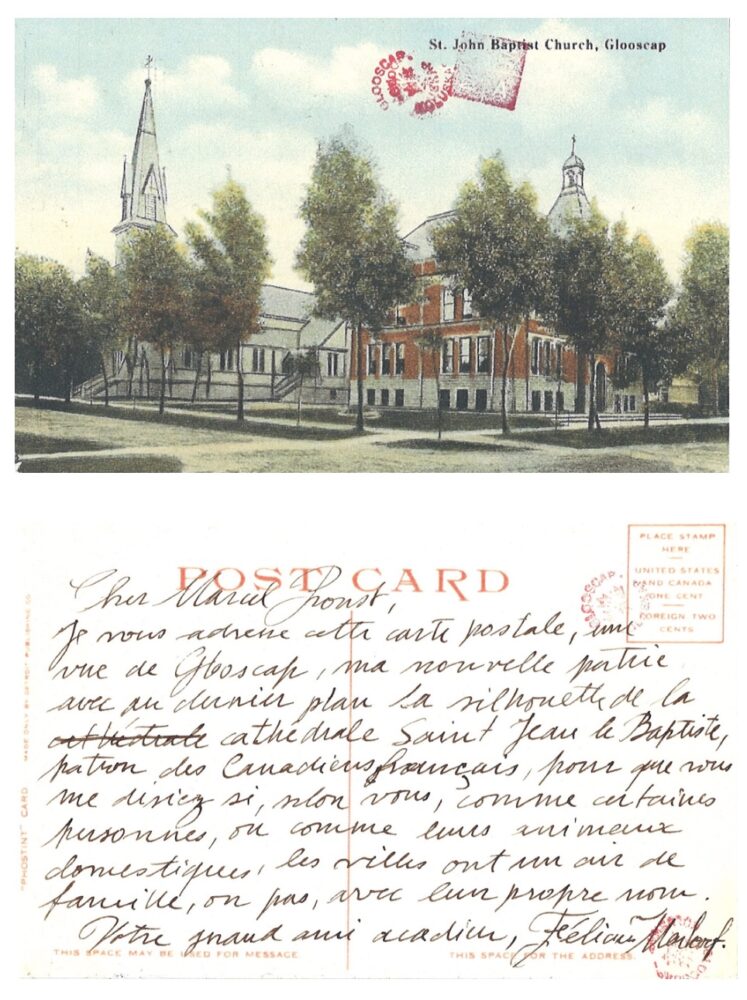 St. John Baptist Church, Glooscap
GLOOSCAP
POST CARD
PLACE STAMP
HERE
UNITED STATES
AND CANADA
ONE CENT
FOREIGN TWO
CENTS
GLOOSCAP
Cher Marcel Proust,
Je vous adresse cette carte postale, une
vue de Glooscap, ma nouvelle patrie
avec au dernier plan la silhouette de la
cathédrale cathédrale Saint Jean le Baptiste,
patron des Canadiens français, pour que vous
me disiez si, selon vous, comme certaines
personnes, ou comme leurs animaux
domestiques, les villes ont un air de
famille, ou pas, avec leur propre nom.
Votre grand ami acadien, Félicien
"PHOSTINT" CARD MADE ONLY BY DETROIT PUBLISHING CO.
THIS SPACE MAY BE USED FOR MESSAGE. THIS SPACE FOR THE ADDRESS.